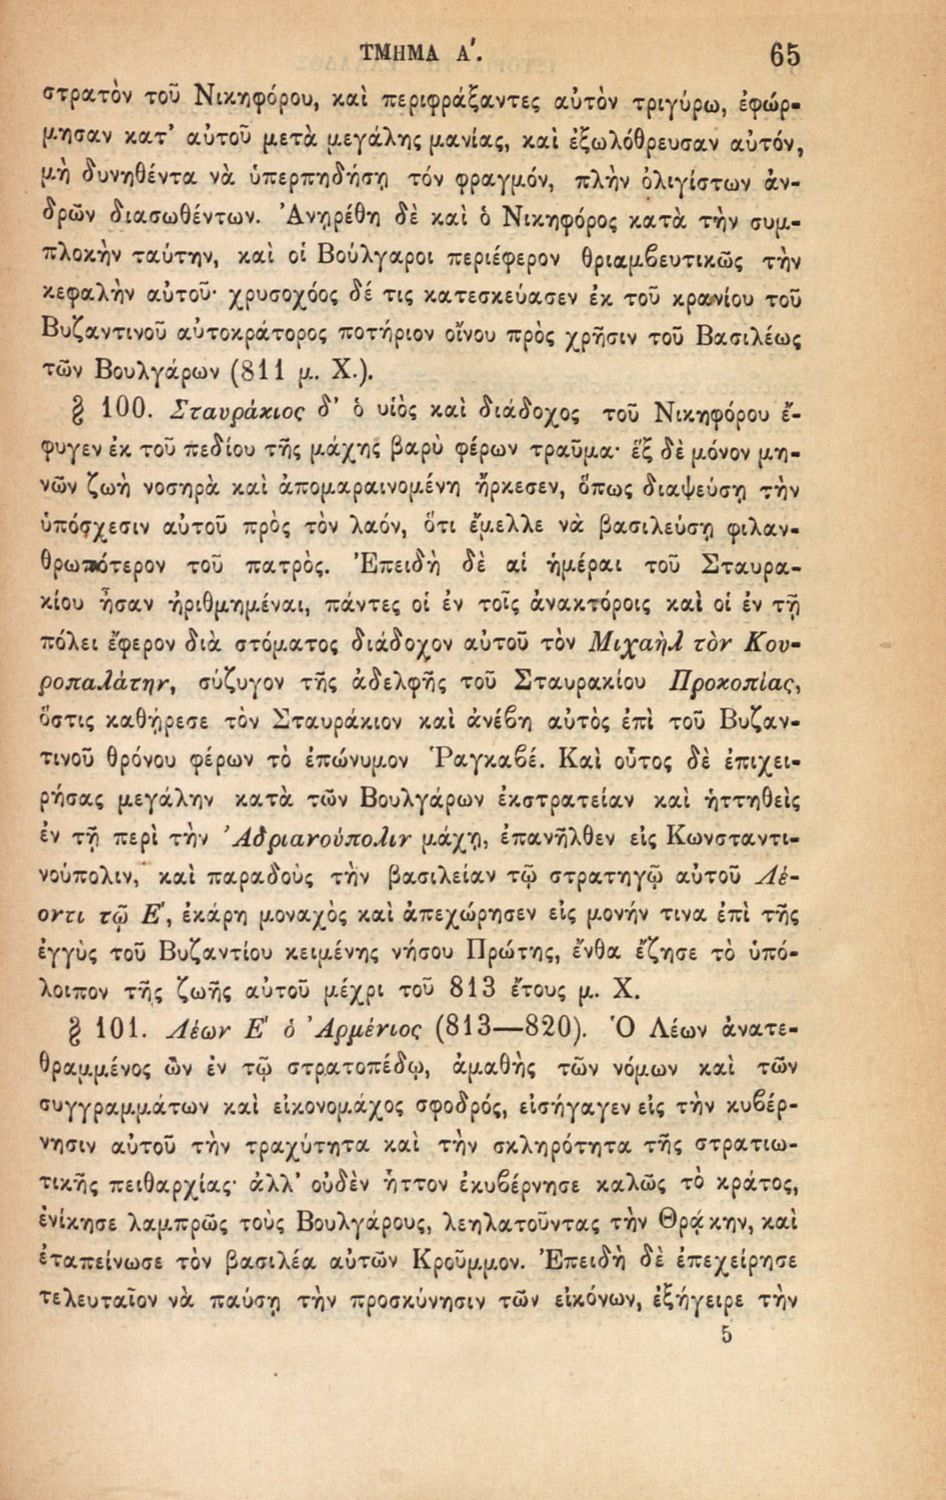 ΤΜΗΜΑ Α΄. 65
στρατὸν τοῦ Νικηφόρου, καὶ περιφράξαντες αὐτὸν τριγύρω, ἐφώρ-
μησαν κατ’ αὐτοῦ μετὰ μεγάλης μανίας, καὶ ἐξωλόθρευσαν αὐτόν,
μὴ δυνηθέντα νὰ ὑπερπηδήσῃ τόν φραγμόν, πλὴν ὀλιγίστων ἀν-
δρῶν διασωθέντων. Ἀνῃρέθη δὲ καὶ ὁ Νικηφόρος κατὰ τὴν συμ-
πλοκὴν ταύτην, καὶ οἱ Βούλγαροι περιέφερον θριαμβευτικῶς τὴν
κεφαλὴν αὐτοῦ· χρυσοχόος δέ τις κατεσκεύασεν ἐκ τοῦ κρανίου τοῦ
Βυζαντινοῦ αὐτοκράτορος ποτήριον οἴνου πρὸς χρῆσιν τοῦ Βασιλέως
τῶν Βουλγάρων (811 μ. Χ.).
§ 100. Σταυράκιος δ’ ὁ υἱὸς καὶ διάδοχος τοῦ Νικηφόρου ἔ-
φυγεν ἐκ τοῦ πεδίου τῆς μάχης βαρὺ φέρων τραῦμα· ἓξ δὲ μόνον μη-
νῶν ζωὴ νοσηρὰ καὶ ἀπομαραινομένη ἤρκεσεν, ὅπως διαψεύσῃ τὴν
ὑπόσχεσιν αὐτοῦ πρὸς τὸν λαόν, ὅτι ἔμελλε νὰ βασιλεύσῃ φιλαν-
θρωπότερον τοῦ πατρὸς. Ἐπειδὴ δὲ αἱ ἡμέραι τοῦ Σταυρα-
κίου ἦσαν ἠριθμημέναι, πάντες οἱ ἐν τοῖς ἀνακτόροις καὶ οἱ ἐν τῇ
πόλει ἔφερον διὰ στόματος διάδοχον αὐτοῦ τὸν Μιχαὴλ τὸν Κου-
ροπαλάτην, σύζυγον τῆς ἀδελφῆς τοῦ Σταυρακίου Προκοπίας,
ὅστις καθῄρεσε τὸν Σταυράκιον καὶ ἀνέβη αὐτὸς ἐπὶ τοῦ Βυζαν-
τινοῦ θρόνου φέρων τὸ ἐπώνυμον Ῥαγκαβέ. Καὶ οὗτος δὲ ἐπιχει-
ρήσας μεγάλην κατὰ τῶν Βουλγάρων ἐκστρατείαν καὶ ἡττηθεὶς
ἐν τῇ περὶ τὴν Ἀδριανούπολιν μάχῃ, ἐπανῆλθεν εἰς Κωνσταντι-
νούπολιν, καὶ παραδοὺς τὴν βασιλείαν τῷ στρατηγῷ αὐτοῦ Λέ-
οντι τῷ Ε΄, ἐκάρη μοναχὸς καὶ ἀπεχώρησεν εἰς μονήν τινα ἐπὶ τῆς
ἐγγὺς τοῦ Βυζαντίου κειμένης νήσου Πρώτης, ἔνθα ἔζησε τὸ ὑπό-
λοιπον τῆς ζωῆς αὐτοῦ μέχρι τοῦ 813 ἔτους μ. Χ.
§ 101. Λέων Ε΄ ὁ Ἀρμένιος (813—820). Ὁ Λέων ἀνατε-
θραμμένος ὢν ἐν τῷ στρατοπέδῳ, ἀμαθὴς τῶν νόμων καὶ τῶν
συγγραμμάτων καὶ εἰκονομάχος σφοδρός, εἰσήγαγεν εἰς τὴν κυβέρ-
νησιν αὐτοῦ τὴν τραχύτητα καὶ τὴν σκληρότητα τῆς στρατιω-
τικῆς πειθαρχίας· ἀλλ’ οὐδὲν ἧττον ἐκυβέρνησε καλῶς τὸ κράτος,
ἐνίκησε λαμπρῶς τοὺς Βουλγάρους, λεηλατοῦντας τὴν Θρᾴκην, καὶ
ἐταπείνωσε τὸν βασιλέα αὐτῶν Κροῦμμον. Ἐπειδὴ δὲ ἐπεχείρησε
τελευταῖον νὰ παύσῃ τὴν προσκύνησιν τῶν εἰκόνων, ἐξήγειρε τὴν
5